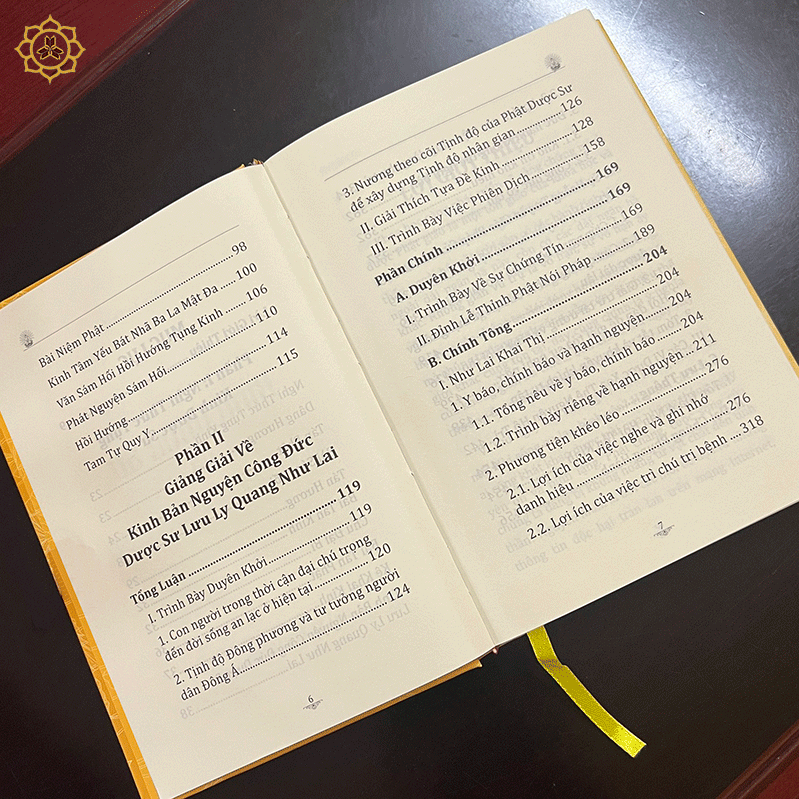 Bài Niệm Phật.....98
Kinh Tâm Yếu Bát Nhã Ba La Mật Đa.....100
Văn Sám Hối Hồi Hướng Tụng Kinh.....106
Phát Nguyện Sám Hối.....110
Hồi Hướng.....114
Tam Tự Quy Y.....115
Phần II
Giảng Giải Về
Kinh Bản Nguyện Công Đức
Dược Sư Lưu Ly Quang Như Lai
Tổng Luận.....119
I. Trình Bày Duyên Khởi.....119
1. Con người trong thời cận đại chú trọng
đến đời sống an lạc ở hiện tại.....120
2. Tịnh độ Đông phương và tư tưởng người
dân Đông Á.....124
6
3. Nương theo cõi Tịnh độ của Phật Dược Sư
để xây dựng Tịnh độ nhân gian.....126
II. Giải Thích Tựa Đề Kinh.....128
III. Trình Bày Việc Phiên Dịch.....158
Phần Chính.....169
A. Duyên Khởi.....169
I. Trình Bày Về Sự Chứng Tín.....169
II. Đỉnh Lễ Thỉnh Phật Nói Pháp.....189
B. Chính Tông.....204
I. Như Lai Khai Thị.....204
1. Y báo, chính báo và hạnh nguyện.....204
1.1. Tổng nêu về y báo, chính báo.....204
1.2. Trình bày riêng về hạnh nguyện.....211
2. Phương tiện khéo léo.....276
2.1. Lợi ích của việc nghe và ghi nhớ
danh hiệu.....276
2.2. Lợi ích của việc trì chú trị bệnh.....318
7